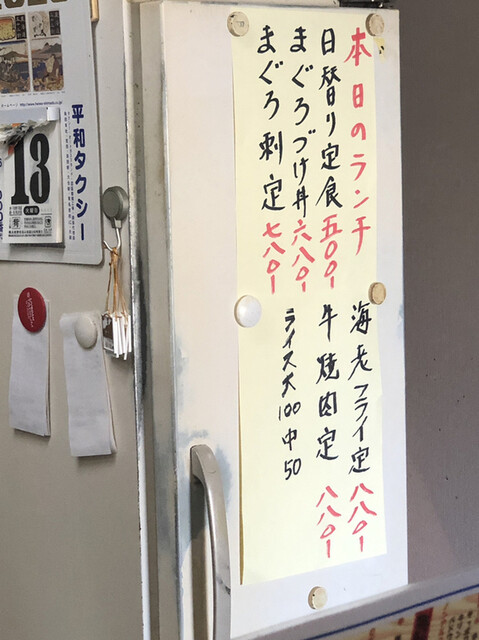 本日のランチ
日替り定食 五〇〇ー
まぐろづけ丼 六八〇ー
まぐろ刺定 七八〇ー
海老フライ定 八八〇ー
牛焼肉定 八八〇ー
ライス大100 中50
平和タクシー
13